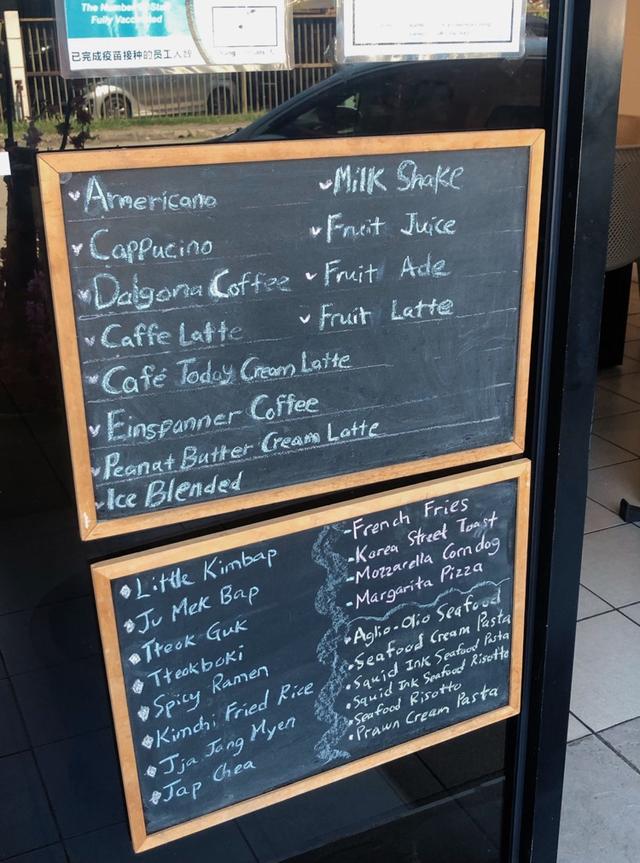 Fully Vaccinated
已完成疫苗接种的员工人数
Americano
Cappucino
Dalgona Coffee
Caffe Latte
Café Today Cream Latte
Einspanner Coffee
Peanut Butter Cream Latte
Ice Blended
Milk Shake
Fruit Juice
Fruit Ade
Fruit Latte
Little Kimbap
Ju Mek Bap
Tteok Guk
Tteokboki
Spicy Ramen
Kimchi Fried Rice
Jja Jang Myen
Jap Chea
-French Fries
-Korea Street Toast
-Mozzarella Corndog
-Margarita Pizza
•Aglio-Olio Seafood
•Seafood Cream Pasta
•Squid Ink Seafood Pasta
•Squid Ink Seafood Risotto
•Seafood Risotto
•Prawn Cream Pasta